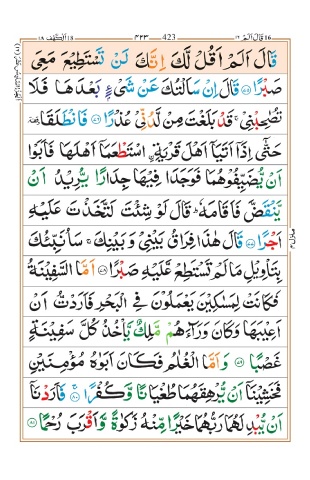 قال الم ١٦ 423 ۴۲۳ الكهف ١٨
قَالَ اَلَمْ اَقُلْ لَّكَ اِنَّكَ لَنْ تَسْتَطِيْعَ مَعِىَ
صَبْرًا ۷۵ قَالَ اِنْ سَاَلْتُكَ عَنْ شَىْءٍۢ بَعْدَهَا فَلَا
تُصٰحِبْنِىْ ۚ قَدْ بَلَغْتَ مِنْ لَّدُنِّىْ عُذْرًا ۷۶ فَانْطَلَقَا ۥ
حَتّٰۤى اِذَاۤ اَتَيَاۤ اَهْلَ قَرْيَةِ ۨاسْتَطْعَمَاۤ اَهْلَهَا فَاَبَوْا
اَنْ يُّضَيِّفُوْهُمَا فَوَجَدَا فِيْهَا جِدَارًا يُّرِيْدُ اَنْ
يَّنْقَضَّ فَاَقَامَهٗ ؕ قَالَ لَوْ شِئْتَ لَتَّخَذْتَ عَلَيْهِ
اَجْرًا ۷۷ قَالَ هٰذَا فِرَاقُ بَيْنِىْ وَبَيْنِكَ ۚ سَاُنَبِّئُكَ
بِتَاْوِيْلِ مَا لَمْ تَسْتَطِعْ عَّلَيْهِ صَبْرًا ۷۸ اَمَّا السَّفِيْنَةُ
فَكَانَتْ لِمَسٰكِيْنَ يَعْمَلُوْنَ فِى الْبَحْرِ فَاَرَدْتُّ اَنْ
اَعِيْبَهَا وَكَانَ وَرَآءَهُمْ مَّلِكٌ يَّاْخُذُ كُلَّ سَفِيْنَةٍ
غَصْبًا ۷۹ وَاَمَّا الْغُلٰمُ فَكَانَ اَبَوٰهُ مُؤْمِنَيْنِ
فَخَشِيْنَاۤ اَنْ يُّرْهِقَهُمَا طُغْيَانًا وَّكُفْرًا ۚ ۸۰ فَاَرَدْنَاۤ
اَنْ يُّبْدِلَهُمَا رَبُّهُمَا خَيْرًا مِّنْهُ زَكٰوةً وَّاَقْرَبَ رُحْمًا ۸۱